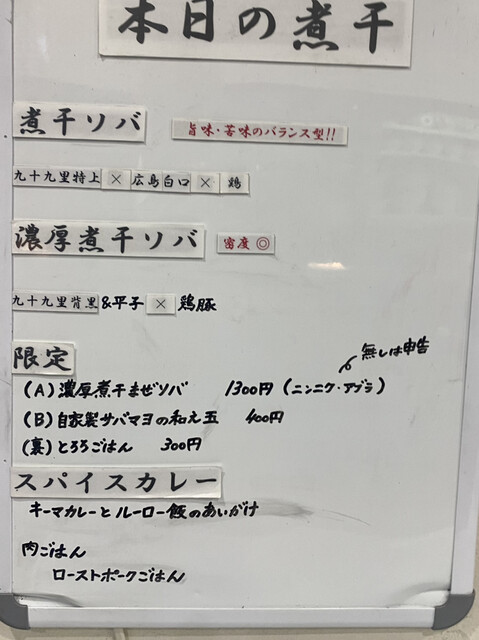 本日の煮干
煮干ソバ 旨味・苦味のバランス型!!
九十九里特上 × 広島白口 × 鶏
濃厚煮干ソバ 密度 ◎
九十九里背黒&平子 × 鶏豚
限定
無しは申告
(A) 濃厚煮干まぜソバ 1300円 (ニンニク・アブラ)
(B) 自家製サバマヨの和え玉 400円
(裏) とろろごはん 300円
スパイスカレー
キーマカレーとルーロー飯のあいがけ
肉ごはん
ローストポークごはん